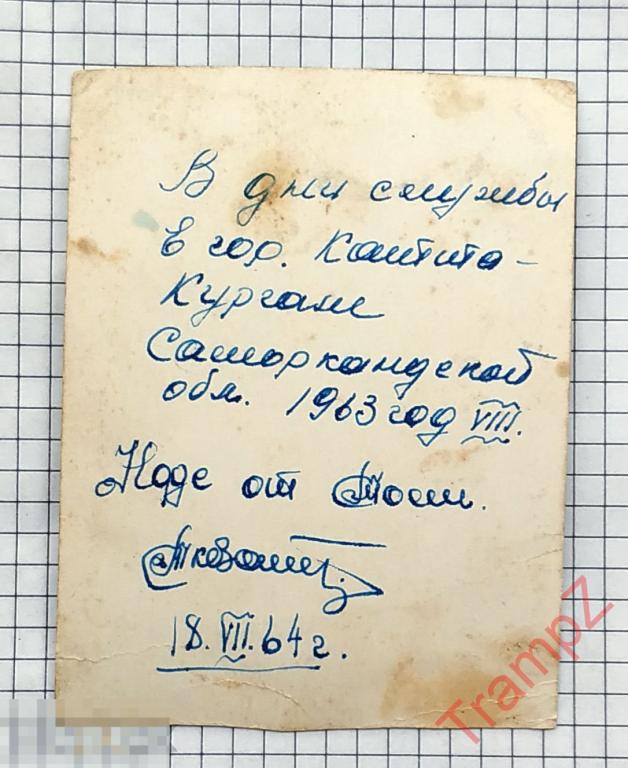 В дни службы
в гор. Каттта-
Кургане
Самаркандской
обл. 1963 год VIII.
Наде от Толи.
18.VII.64 г.
TrampZ